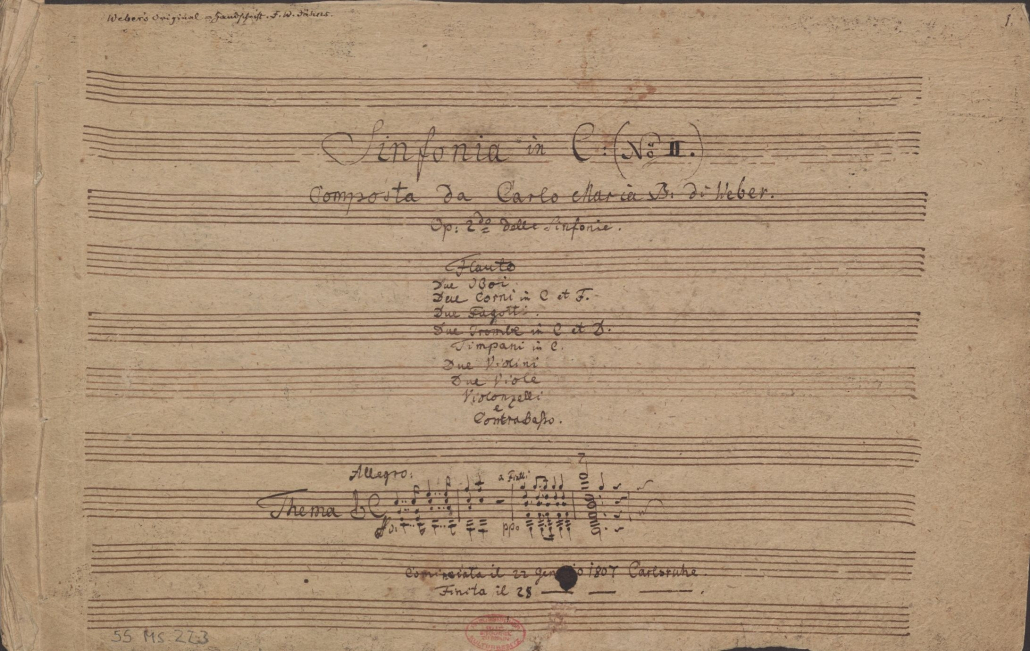 Weber's Original-Handschrift. F. W. Jähns.
1.
Sinfonia in C. (No II.)
Composta da Carlo Maria B. di Weber.
Op: 2do delle Sinfonie.
Flauto
Due Oboi.
Due Corni in C et F.
Due Fagotti.
Due Trombe in C et D.
Timpani in C.
Due Violini
Due Viole
Violonzelli
e
ContraBasso.
Allegro.
a Fiati
Thema
ppo
Cominciata il 22 Gen o 1807 Carlsruhe.
Finita il 28 — — —.
55 MS 223